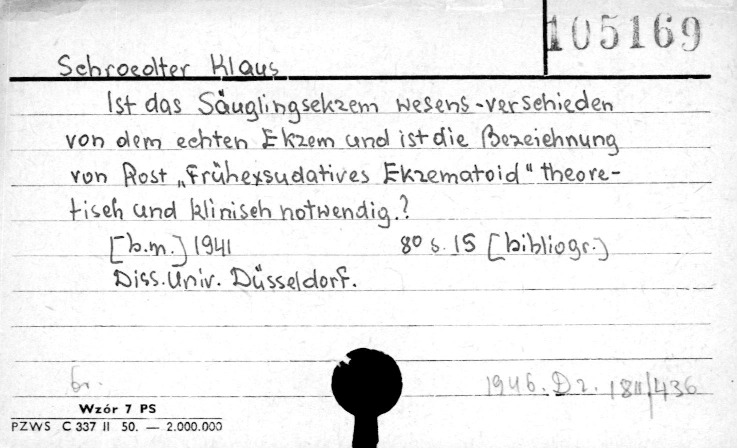 105169
Schroedter Klaus
Ist das Säuglingsekzem wesens-verschieden
von dem echten Ekzem und ist die Bezeichnung
von Rost „Frühexsudatives Ekzematoid" theore-
tisch und klinisch notwendig.?
[b.m.] 1941 8° s. 15 [bibliogr.]
Diss. Univ. Düsseldorf.
br. 1946. Dz. 436
Wzór 7 PS
PZWS C 337 II 50. — 2.000.000